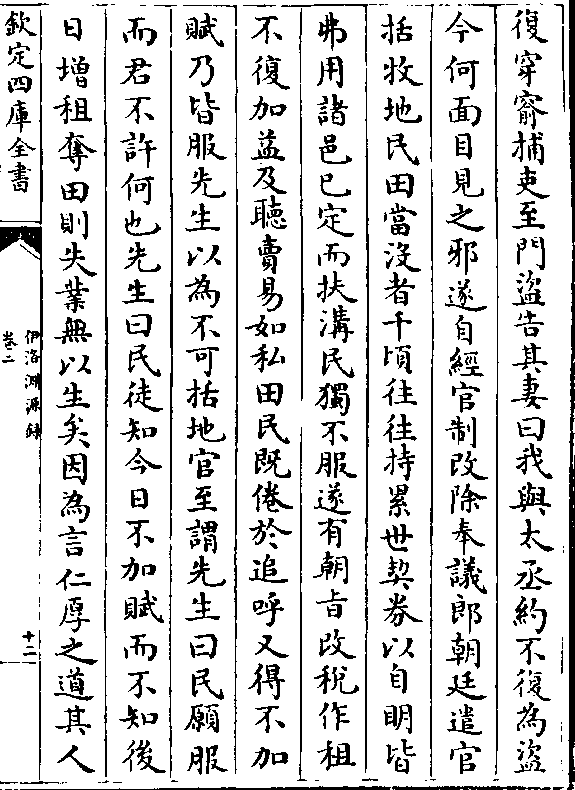 復穿窬捕吏至門盜告其妻曰我與太丞約不復為盜
今何面目見之邪遂自經官制改除奉議郎朝廷遣官
括牧地民田當沒者千頃往往持累世契券以自明皆
弗用諸邑已定而扶溝民獨不服遂有朝㫖改稅作租
不復加益及聽賣易如私田民既倦於追呼又得不加
賦乃皆服先生以為不可括地官至謂先生曰民願服
而君不許何也先生曰民徒知今日不加賦而不知後
日增租奪田則失業無以生矣因為言仁厚之道其人
欽定四庫全書
伊洛淵源錄
卷二
十二